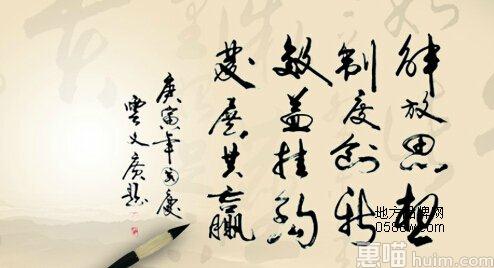 解放思想
制度创新
效益挂钩
发展共赢
庚寅年国庆
云文广题
地方品牌网
0588w.com
惠喵
huim.com